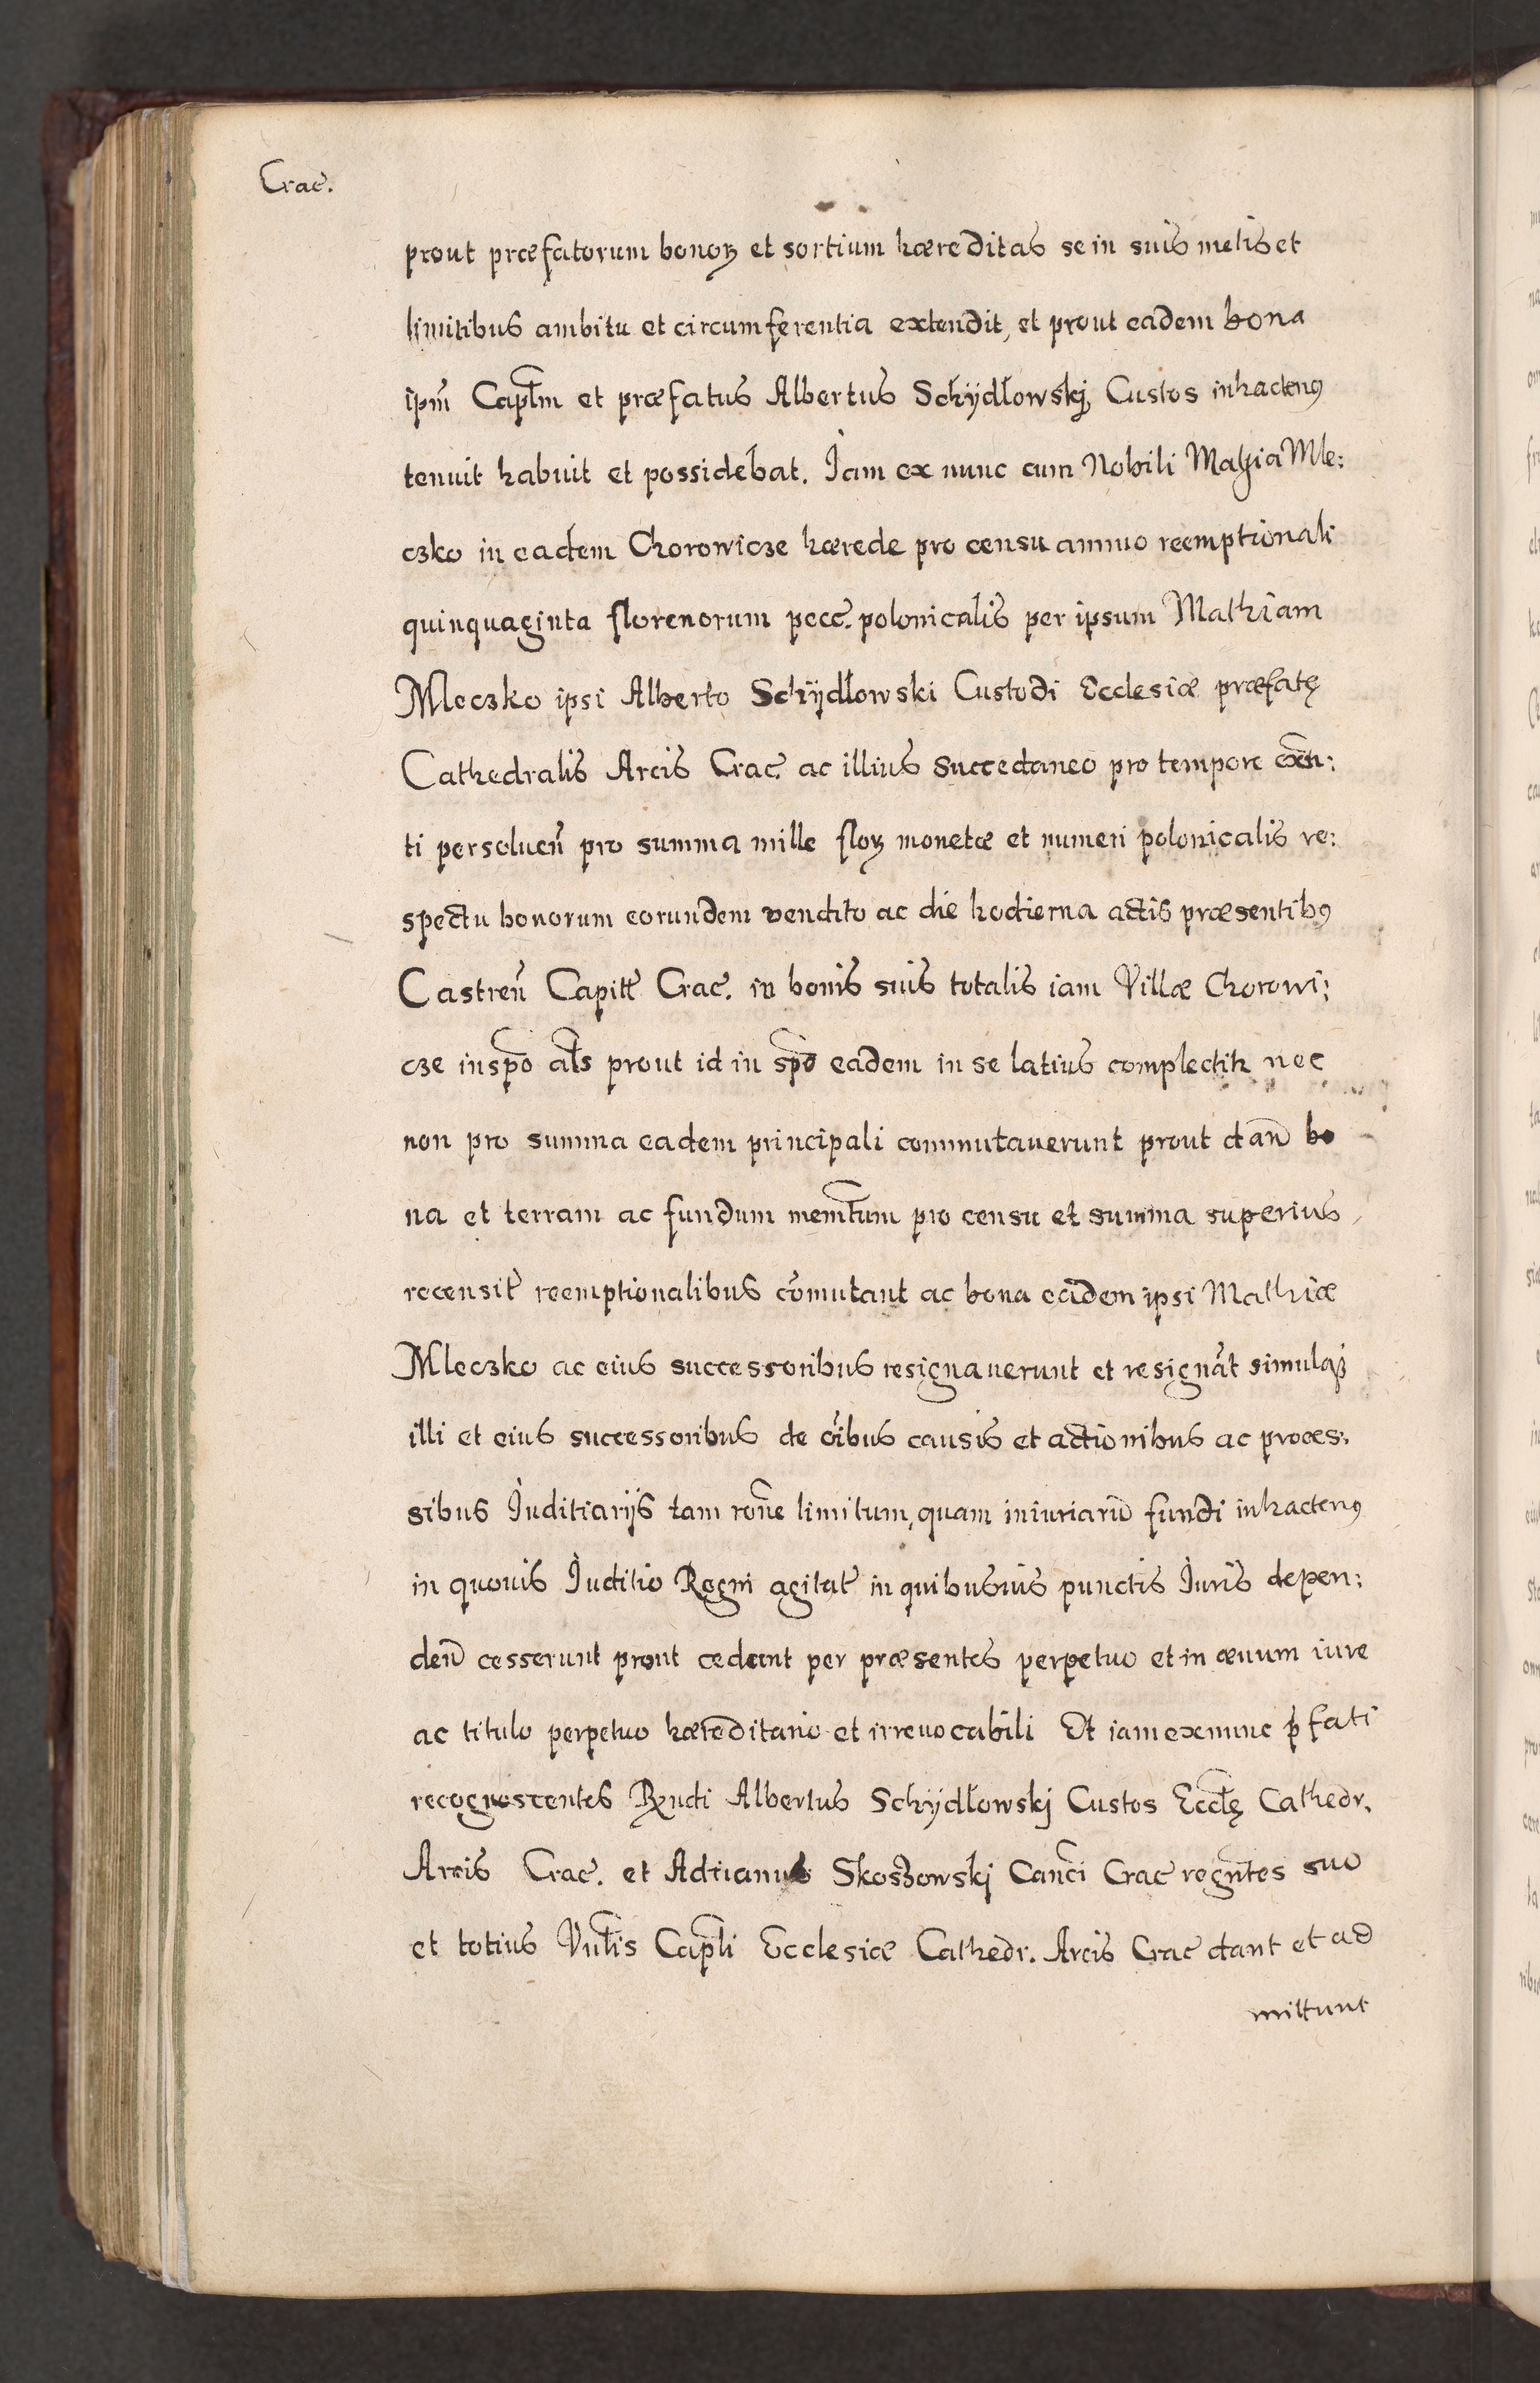 Crac.
prout præfatorum bonoꝝ et sortium hæreditas se in suis metis et
limitibus ambitu et circumferentia extendit, et prout eadem bona
ipm̃ Capl̃m et præfatus Albertus Schÿdłowskj Custos inhactenꝰ
tenuit habuit et possidebat. Iam ex nunc cum Nobili Mathia Mle:
czko in eadem Chorowicze hærede pro censu annuo reemptionali
quinquaginta florenorum pecc. polonicalis per ipsum Mathiam
Mleczko ipsi Alberto Schÿdłowski Custodi Ecclesiæ præfatę
Cathedralis Arcis Crac. ac illius succedaneo pro tempore exñ:
ti persolueñ pro summa mille floꝝ monetæ et numeri polonicalis re:
spectu bonorum eorundem vendito ac die hodierna actis præsentibꝰ
Castreñ Capitł Crac. in bonis suis totalis iam Villæ Chorowi:
cze inspõ al̃s prout id in spõ eadem in se latius complectitr nec
non pro summa eadem principali commutauerunt prout dañ bo
na et terram ac fundum memt̃um pro censu et summa superius
recensit̃ reemptionalibus com̃utant ac bona eadem ipsi Mathiæ
Mleczko ac eius successoribus resignauerunt et resignãt simulqꝫ
illi et eius successoribus de oĩbus causis et actionibus ac proces:
sibus Iuditiarijs tam rõne limitum, quam iniuriarũ fundi inhactenꝰ
in quouis Iuditio Regni agitat̃ in quibusuis punctis Iuris depen:
deñ cesserunt prout cedunt per præsentes perpetuo et in æuum iure
ac titulo perpetuo hæreditario et irreuocabili Et iam ex nunc p̃fati
recognoscentes Rṇdi Albertus Schÿdłowskj Custos Eccl̃ę Cathedr.
Arcis Crac. et Adrianus Skoszowskj Canci Crac recgñtes suo
et totius Vnl̃is Capl̃i Ecclesiæ Cathedr. Arcis Crac dant et ad
mittunt